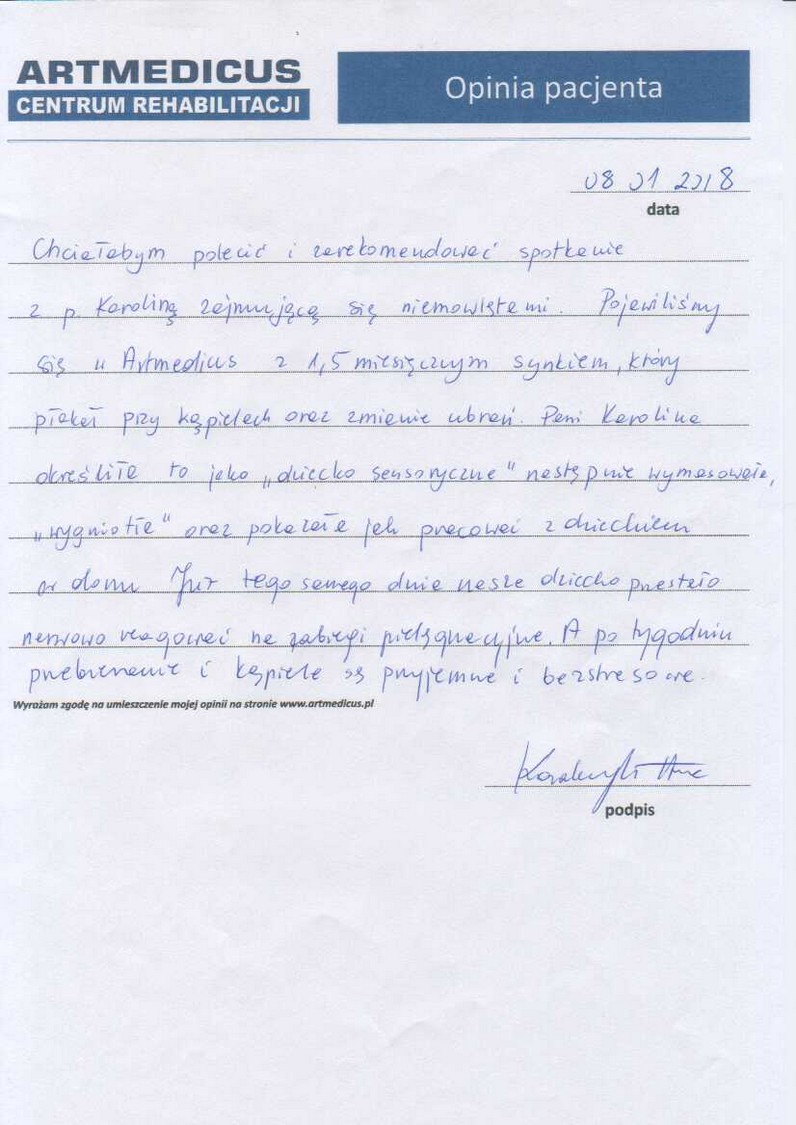 ARTMEDICUS
CENTRUM REHABILITACJI
Opinia pacjenta
08 01 2018
data
Chciałabym polecić i zarekomendować spotkanie
z p. Karoliną zajmującą się niemowlętami. Pojawiliśmy
się u Artmedicus z 1,5 miesięcznym synkiem, który
płakał przy kąpielach oraz zmianie ubrań. Pani Karolina
określiła to jako „dziecko sensoryczne" następnie wymasowała,
„wygniotła" oraz pokazała jak pracować z dzieckiem
w domu Już tego samego dnia nasze dziecko przestało
nerwowo reagować na zabiegi pielęgnacyjne. A po tygodniu
przebieranie i kąpiele są przyjemne i bezstresowe.
Wyrażam zgodę na umieszczenie mojej opinii na stronie www.artmedicus.pl
podpis